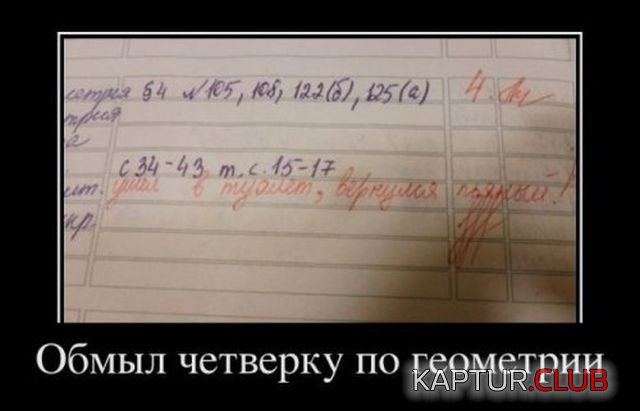 §4 №105, 108, 122(б), 125(а) 4.
с 34-43 т. с. 15-17
ушел в туалет, вернулся пьяный!
Обмыл четверку по геометрии
KAPTUR.CLUB